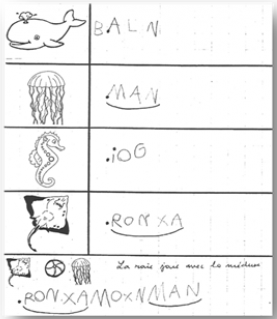 BALN
.MAN
.iOO
.RONXA
La raie joue avec la méduse
.RONXAMOXNMAN